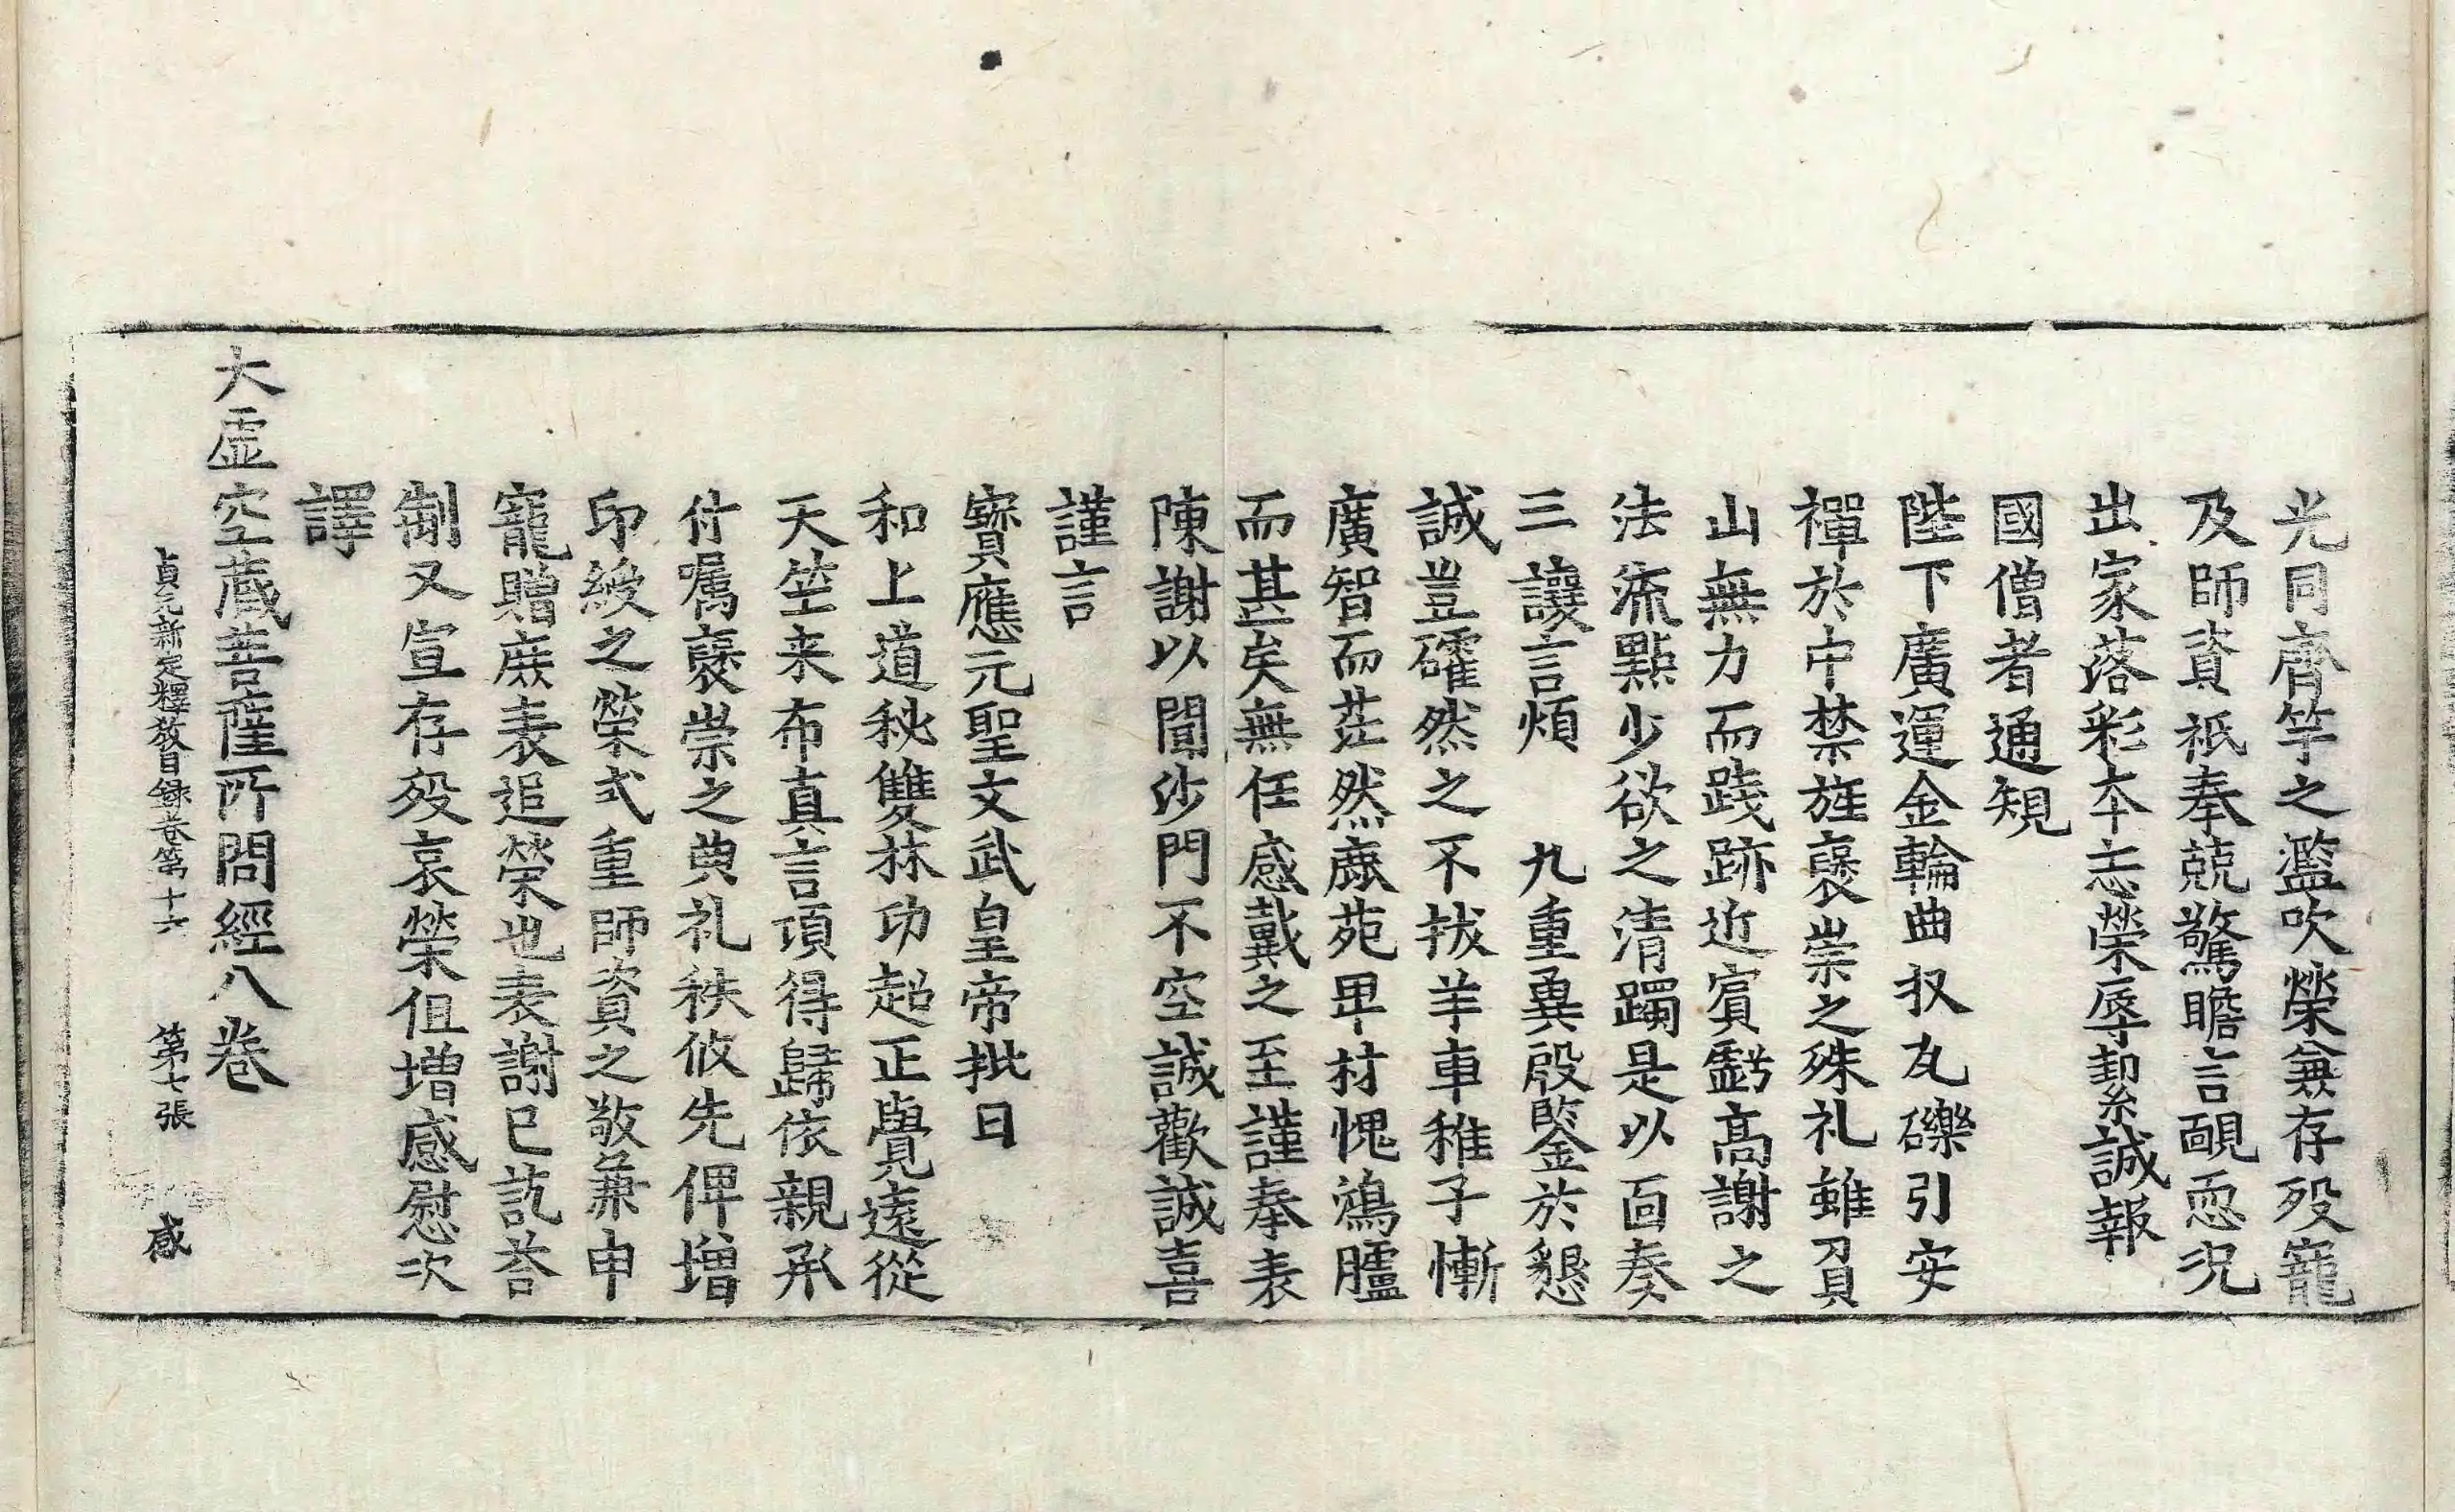 光同齊竽之濫吹榮兼存歿寵
及師資祇奉兢驚瞻言靦恧況
出家落彩本忘榮辱契誠報
國僧者通規
陛下廣運金輪曲収瓦礫引安
禪於中禁旌褒崇之殊礼雖君
山無力而踐跡近賓虧高謝之
法流點少欲之清躅是以面奏
三讓言煩　九重冀殷鑒於懇
誠豈礭然之不拔羊車稚子慚
廣智而茫然鹿苑畢材愧鴻臚
而甚矣無任感戴之至謹奉表
陳謝以聞沙門不空誠歡誠喜
謹言
寶應元聖文武皇帝批曰
和上道秘雙林功超正覺遠從
天竺来布真言頃得歸依親承
付囑褒崇之典礼秩攸先俾增
印綬之榮式重師資之敬兼申
寵贈廞表追榮也表謝已訖荅
制又宣存歿哀榮但增感慰次
譯
大虛空藏菩薩所問經八卷
貞元新定釋教目録卷第十六　第七張　感